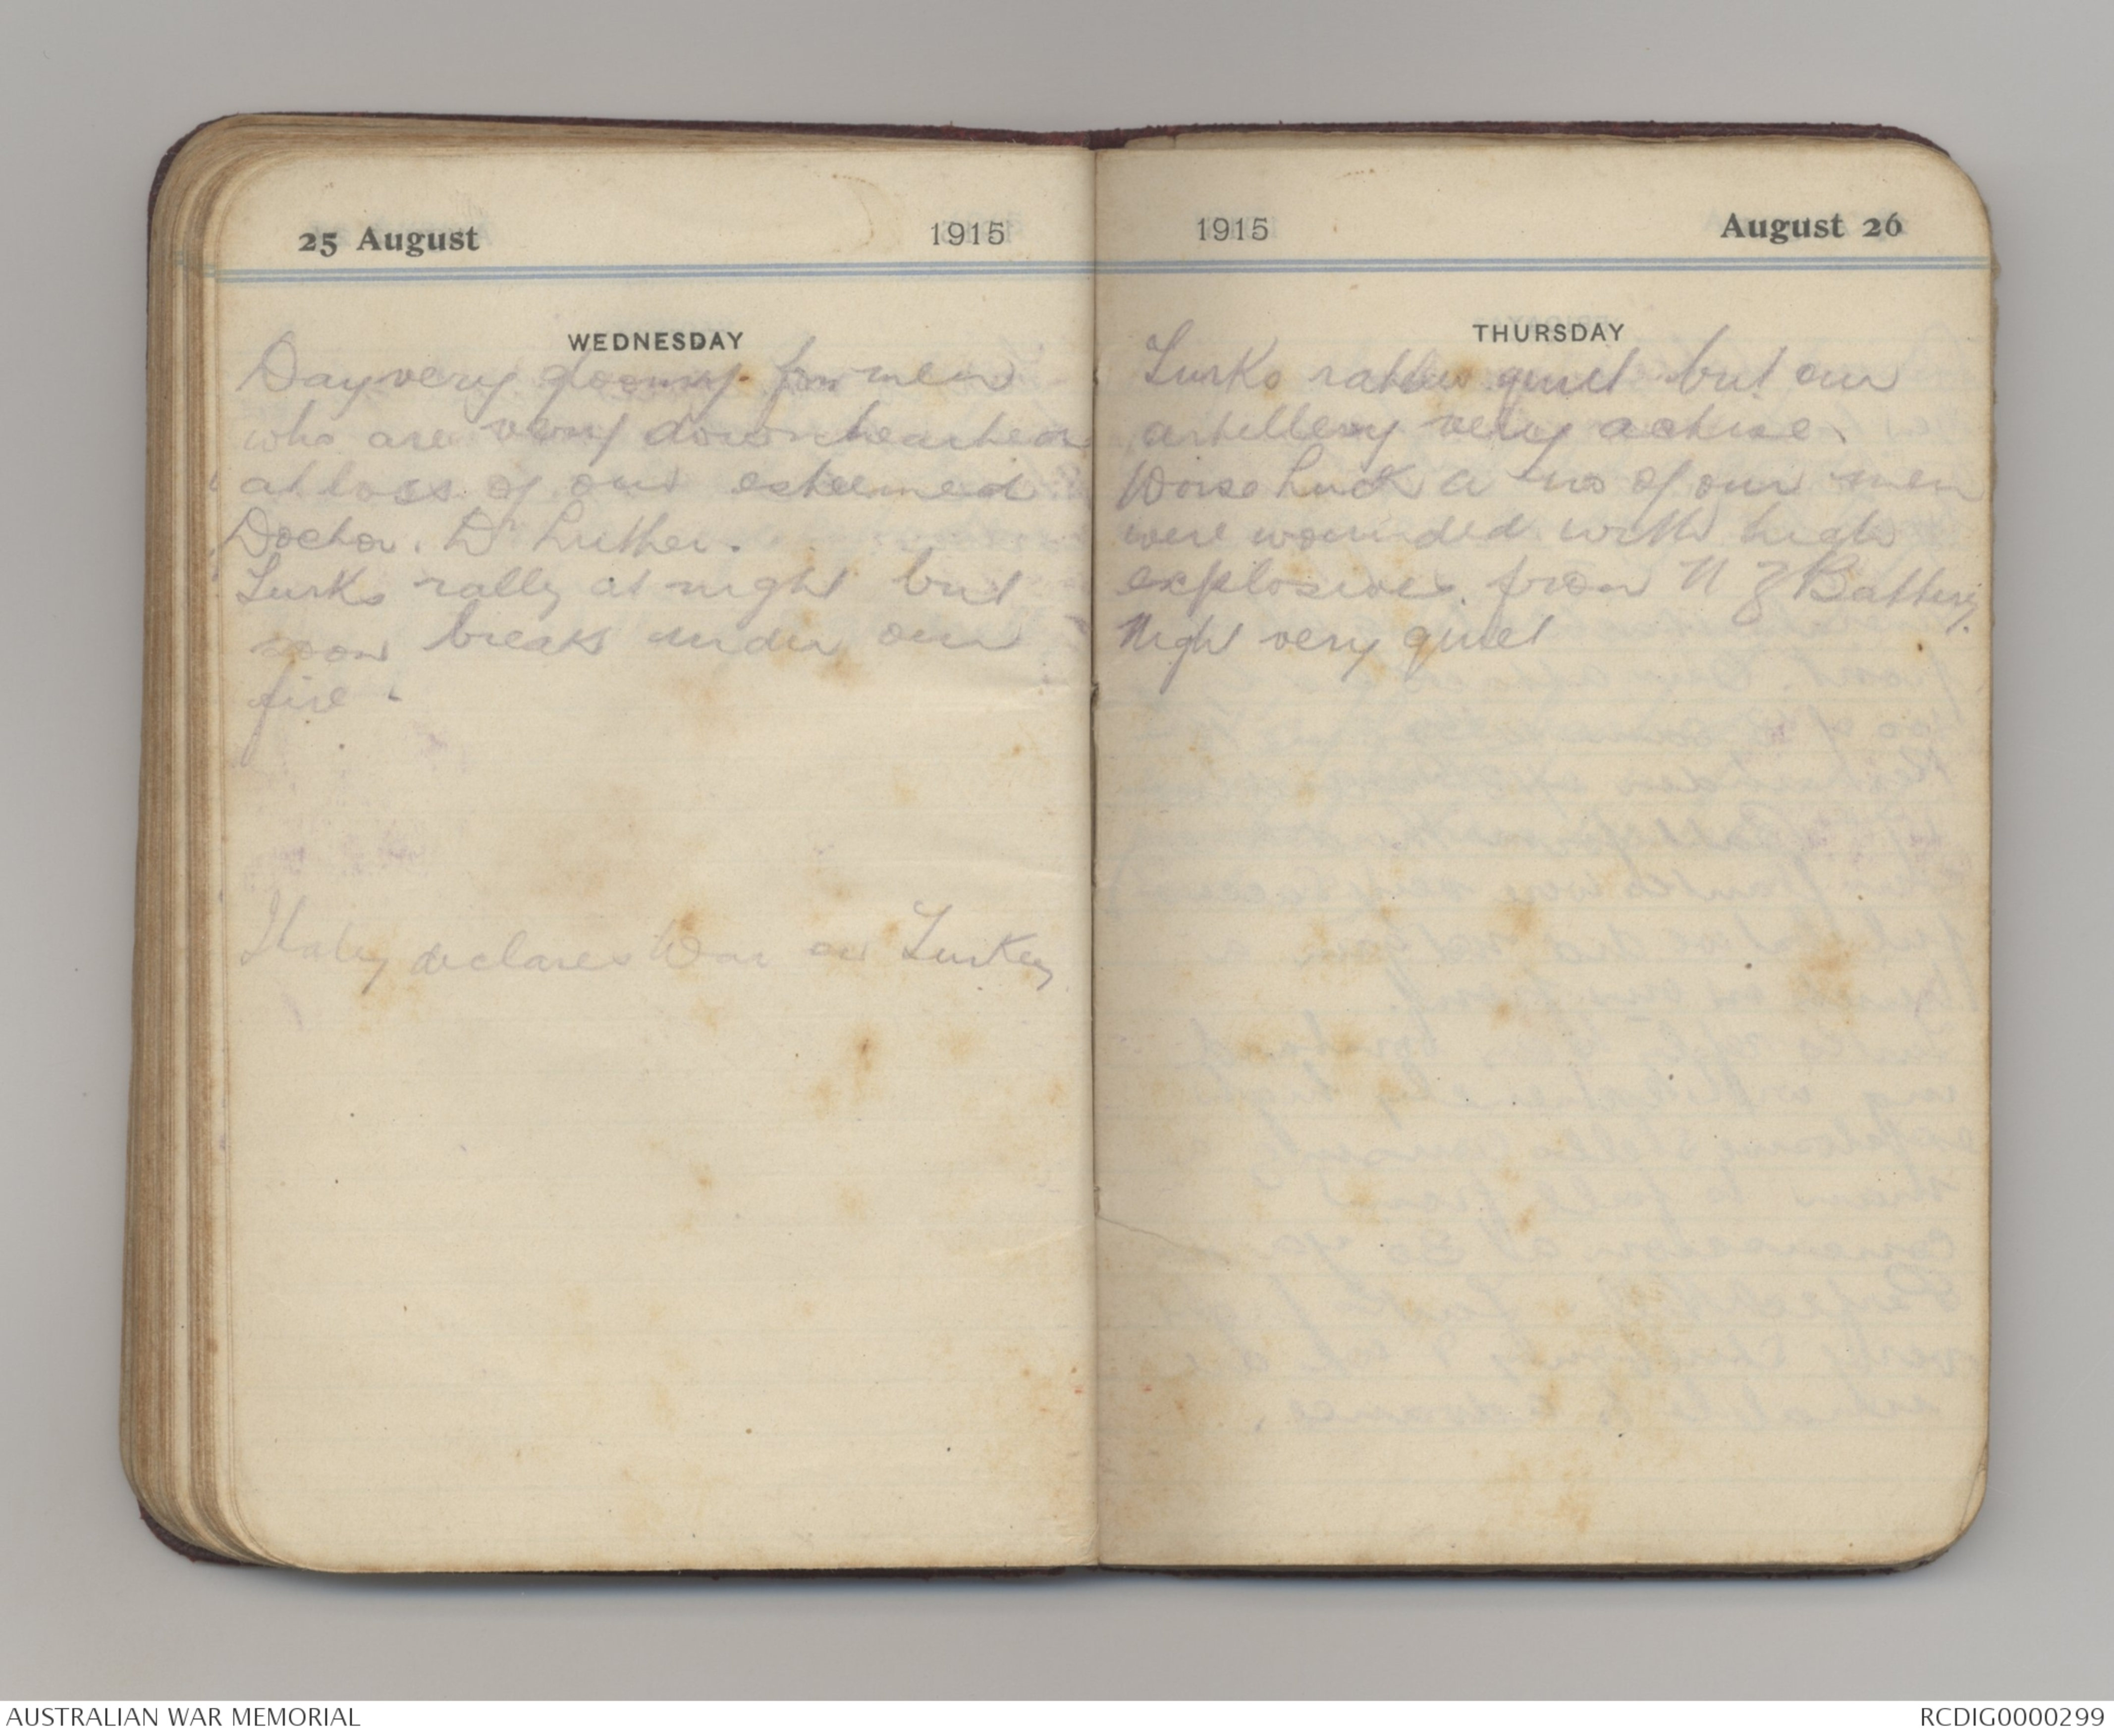 25 August 1915
WEDNESDAY
Day very gloomy for men
who are very downhearted
at loss of our esteemed
Doctor. Dr Luther.
Turks rally at night but
soon break under our
fire.
Italy declares War on Turkey
1915 August 26
THURSDAY
Turks rather quiet but our
artillery very active.
Worse Luck a no of our men
were wounded with high
explosives from N Z Battery.
Night very quiet
AUSTRALIAN WAR MEMORIAL
RCDIG0000299